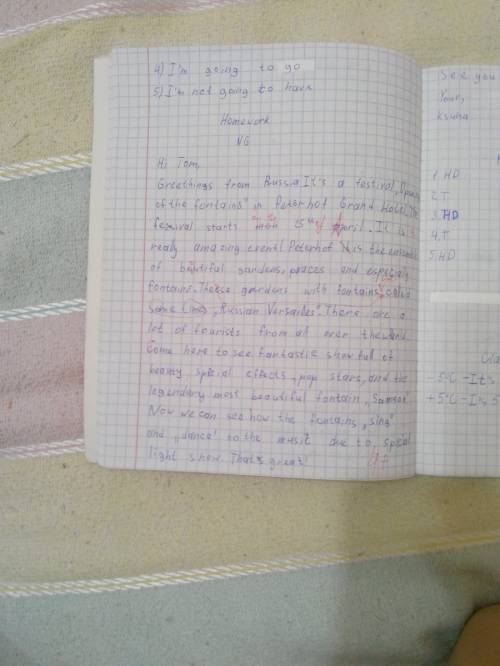 4) I'm going to go
5) I'm not going to have
Homework
№6
Hi Tom,
Greethings from Russia. It's a festival "Opening
of the fontains" in Peterhof Grand Hotel. The
festival starts 15th April. It is
realy amazing event! Peterhof is the
of beautiful gardens, places and especialy
fontains. These gardens with fontains called
some times "Russian Versailes". There are a
lot of tourists from all over the world
come here to see fantastic show full of
special effects, pop stars, and the
legendary most beautiful fontain "Samson"
Now we can see how the fontains "sing"
and "dance" to the music due to special
light show. That's great!
See you
Your,
Ksuha
1. HD
2. T
3. HD
4. T
5. HD
-5°C - It's
+5°C - It's